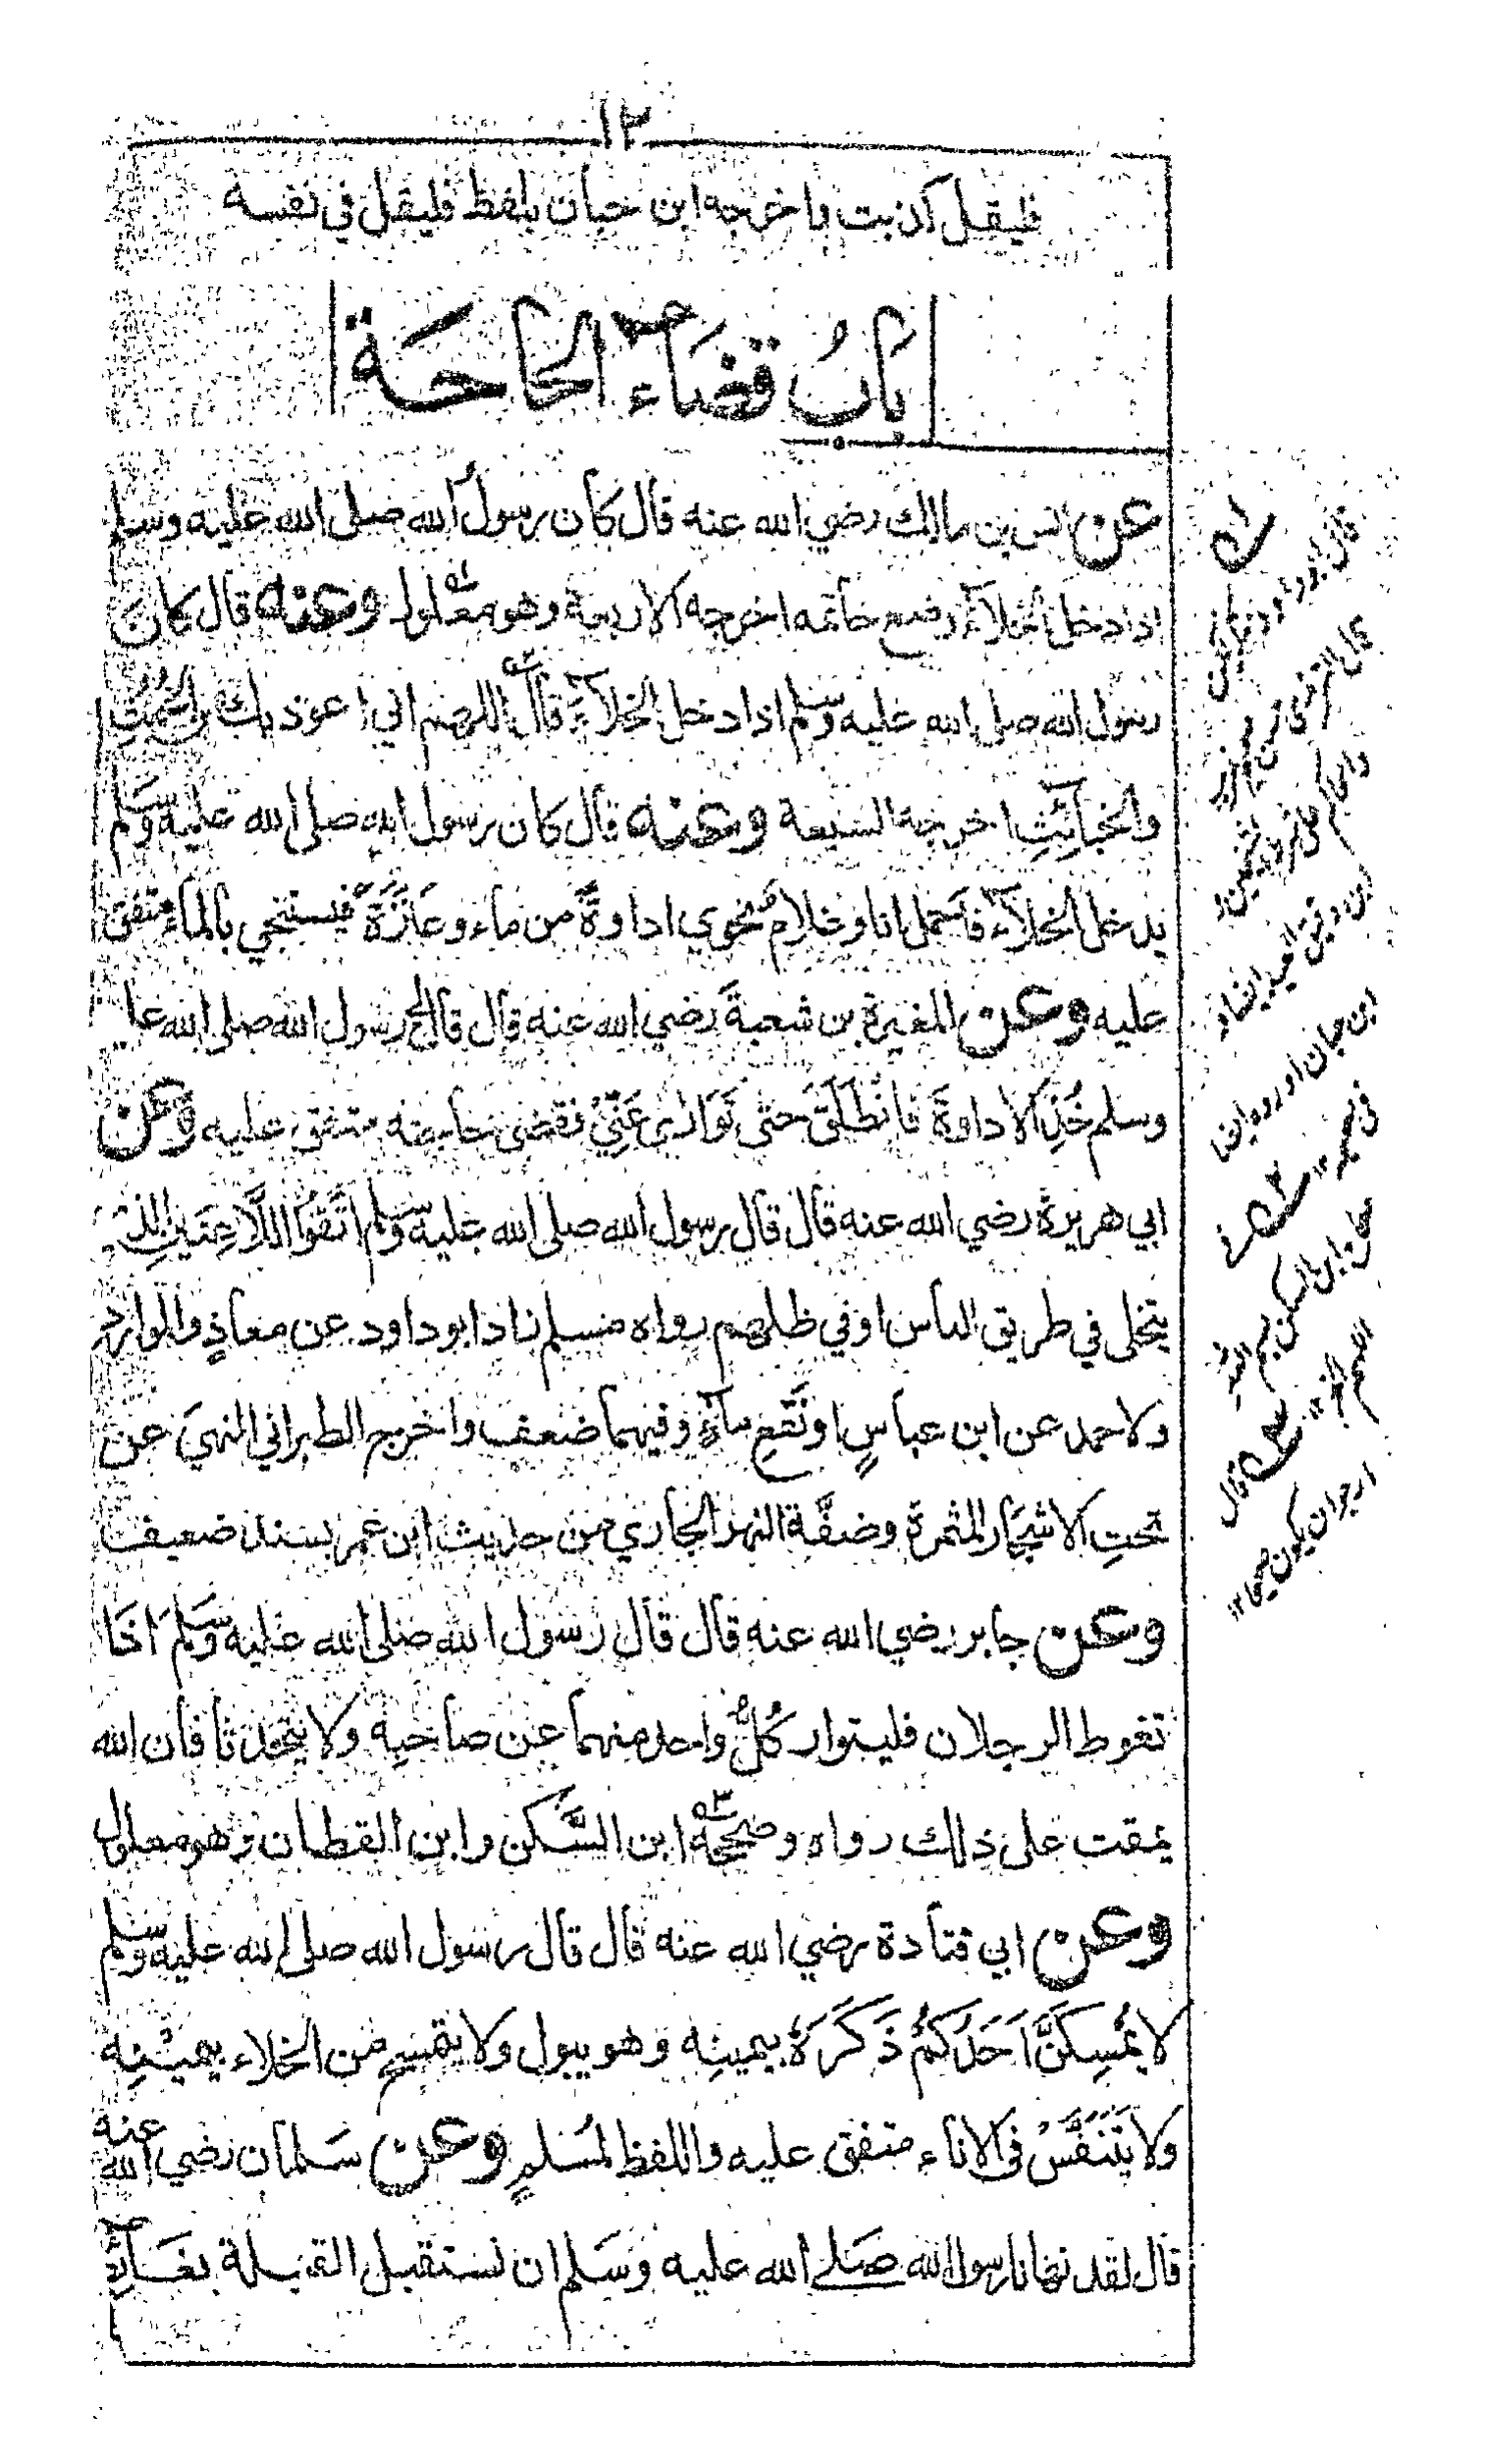 ١٢
فليقل كذبت واخرجه ابن حبان بلفظ فليقل في نفسه
بَابُ قضَاءِ الحَاجَة
عن انس بن مالك رضي الله عنه قال كان رسول الله صلى الله عليه وسلم
اذا دخل الخلآء وضع خاتمه اخرجه الاربعة وهو معلول وعنه قال كان
رسول الله صلى الله عليه وسلم اذا دخل الخلآء قال اللهم اني اعوذ بك من الخُبُثِ
والخبآئِثِ اخرجه السبعة وعنه قال كان رسول الله صلى الله عليه وسلم
يدخل الخلآء فاحمل انا وغلامٌ نحوي اداوةً من ماء وعَنَزَةً فيستنجي بالماء متفق
عليه وعن المغيرة بن شعبةَ رضي الله عنه قال قال لي رسول الله صلى الله عليه
وسلم خُذِ الاداوةَ فانْطَلَقَ حتى تَوَارى عَنِّيْ فقضى حاجته متفق عليه وعن
ابي هريرة رضي الله عنه قال قال رسول الله صلى الله عليه وسلم اتَّقُوا اللَّاعِنَينِ الذي
يتخلى في طريق الناس او في ظلهم رواه مسلم زاد ابو داود عن معاذٍ والموارد
ولاحمد عن ابن عباسٍ او نَقْعِ مآءٍ وفيهما ضعف واخرج الطبراني النهيَ عن
تحتِ الاشجار المثمرة وضفَّة النهر الجاري من حديث ابن عمر بسند ضعيف
وعن جابر رضي الله عنه قال قال رسول الله صلى الله عليه وسلم اذا
تغوط الرجلان فليتوار كُلُّ واحد منهما عن صاحبِهِ ولا يتحدثا فان الله
يمقت على ذلك رواه وصححه ابن السَّكن وابن القطان وهو معلول
وعن ابي قتادة رضي الله عنه قال قال رسول الله صلى الله عليه وسلم
لا يمُسِكَنَّ اَحَدُكمُ ذَكَرَهُ بيمينِه وهو يبول ولا يتمسح من الخلاء بيمينِه
ولا يَتَنَفَّسْ في الاناء متفق عليه واللفظ لمُسلمٍ وعن سَلمان رضي الله عنه
قال لقد نهانا رسول الله صَلى الله عليه وسَلم ان نستقبل القبلة بغَآئِطٍ